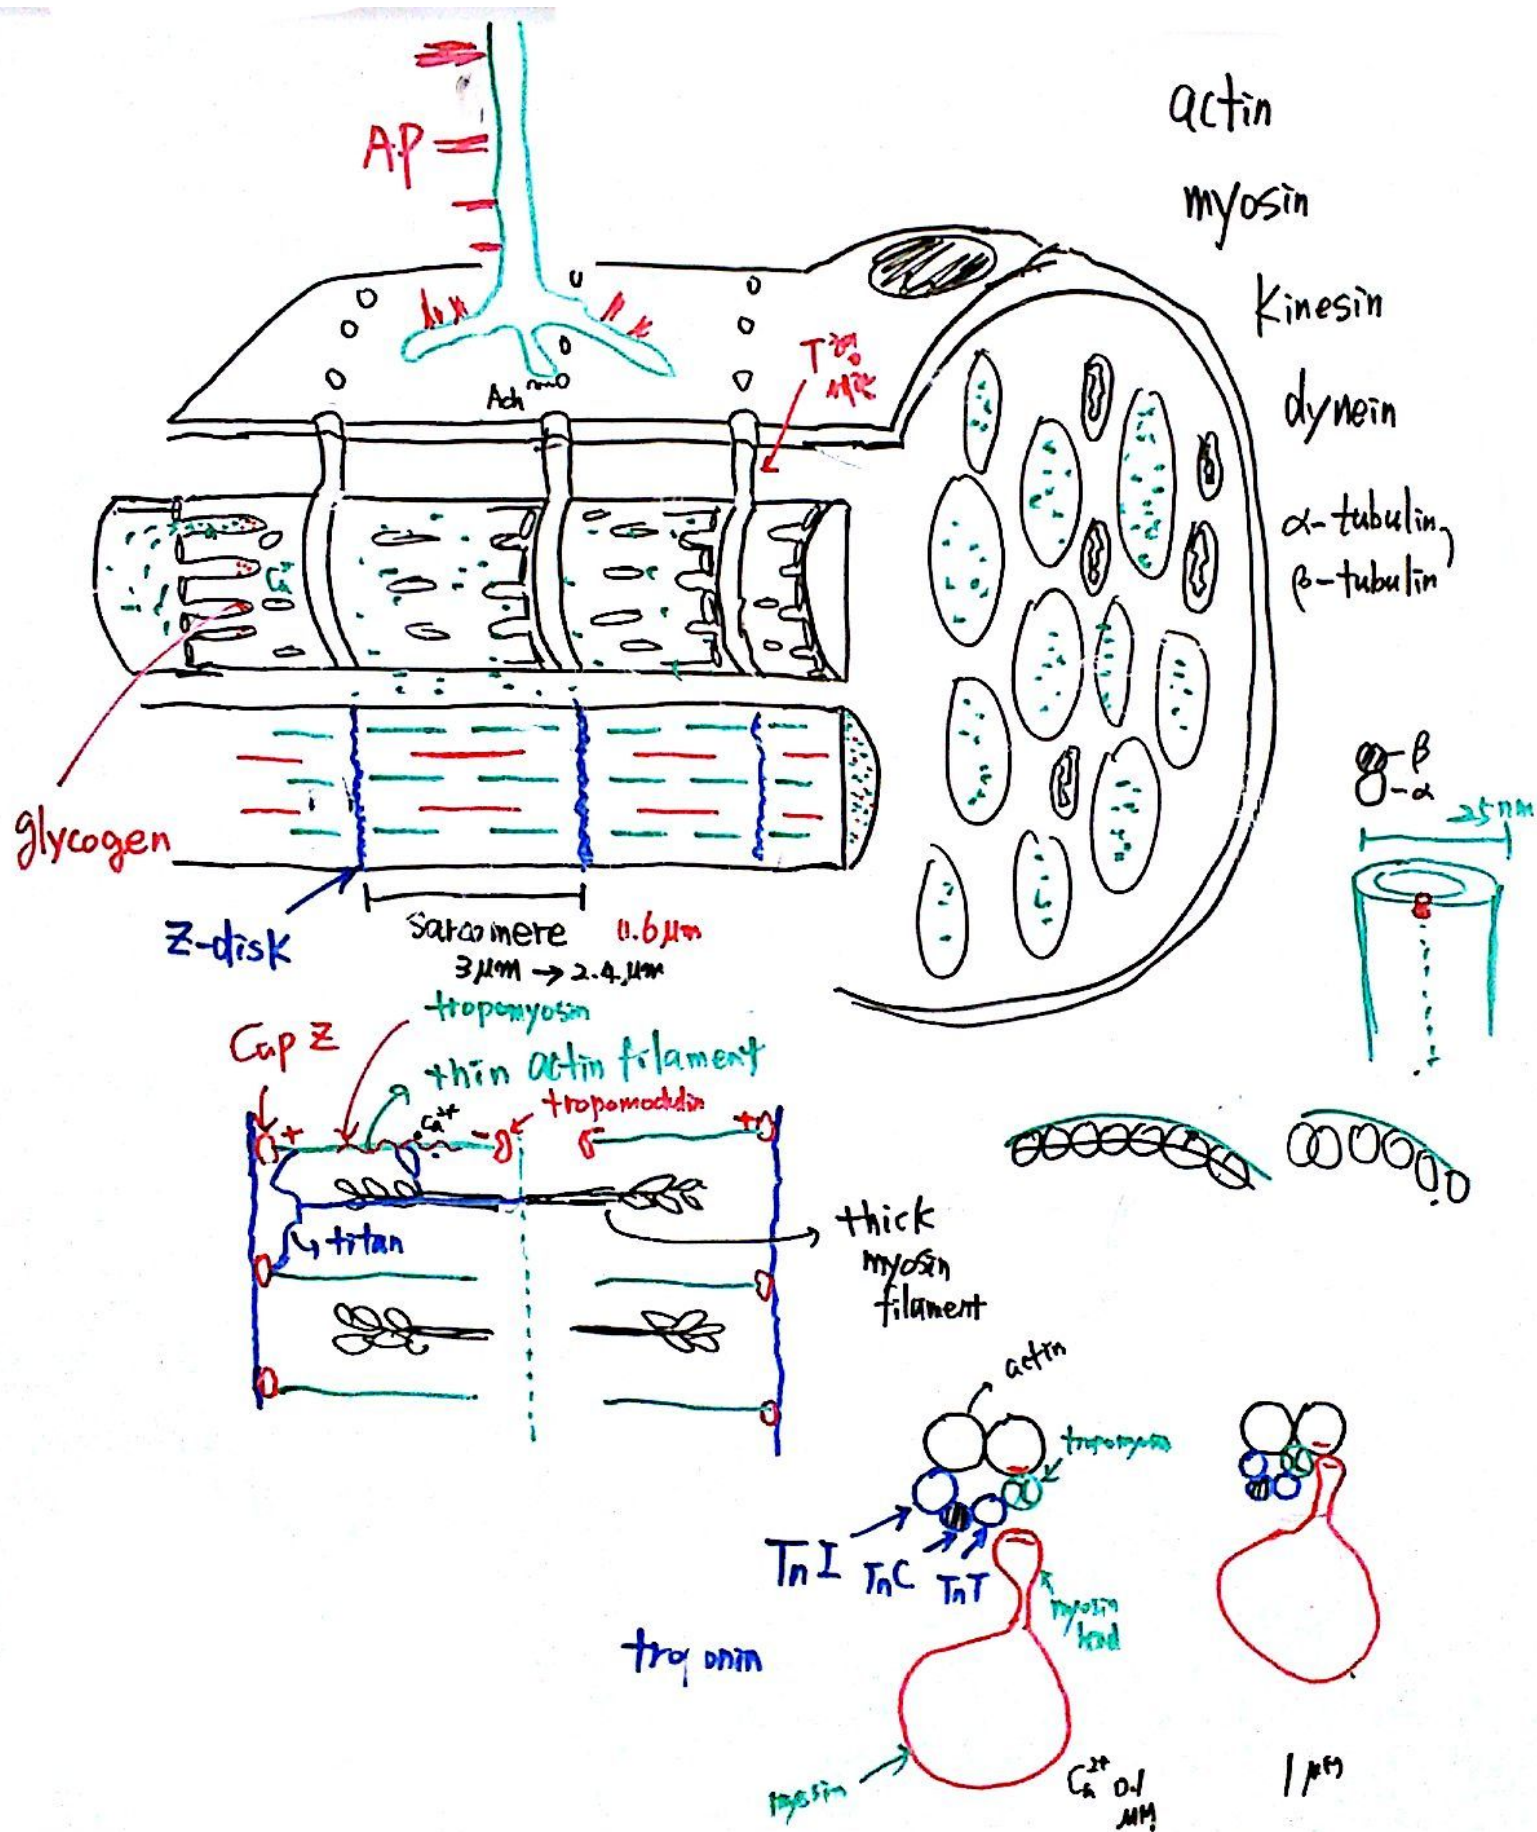 AP
actin
myosin
kinesin
dynein
α-tubulin,
β-tubulin
Ach
Ca²⁺
glycogen
Z-disk
sarcomere
0.6 μm
3 μm → 2.4 μm
β
α
25 nm
tropomyosin
Cap Z
thin actin filament
tropomodulin
Ca²⁺
+
-
+
titan
thick
myosin
filament
actin
tropomyosin
TnI
TnC
TnT
myosin
head
troponin
myosin
Ca²⁺ 0.1
μM
1 μM